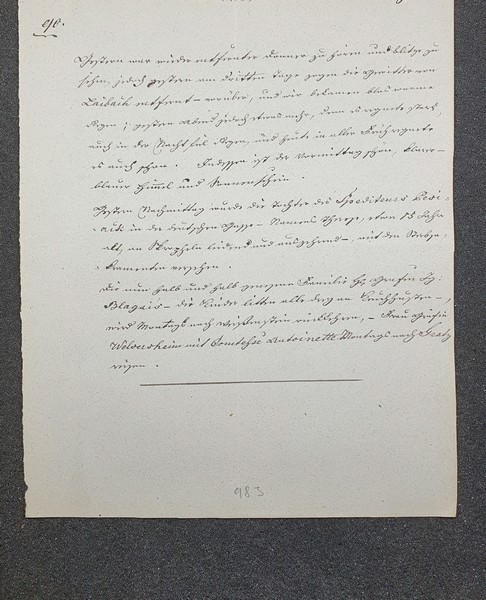 90.
Gestern war wieder entfernter Donner zu hören und Blitze zu
sehen, jedoch gestern am dritten Tage zogen die Gewitter von
Laibach entfernt – vorüber, und wir bekamen blos warme
Regen; gestern Abend jedoch etwas mehr, denn es regnete stark,
auch in der Nacht fiel Regen, und heute in aller Frühe regnete
es auch schon. Indessen ist der Vormittag schön, klarer
blauer Himmel und Sonnenschein.
Gestern Nachmittag wurde die Tochter des Spediteurs
in der deutschen Gasse – Namens Therese, etwa 15 Jahre
alt, an Skropheln leidend und auszehrend –, mit den Sterbe-
sakramenten versehen.
Die nun halb und halb genesene Familie des Grafen
Blagais – die Kinder litten alle an Keuchhusten –,
wird Montags nach Weißenstein rückkehren, – Frau Gräfin
Welsersheim mit Comtesse Antoinette Montags nach Gratz
reisen.
983